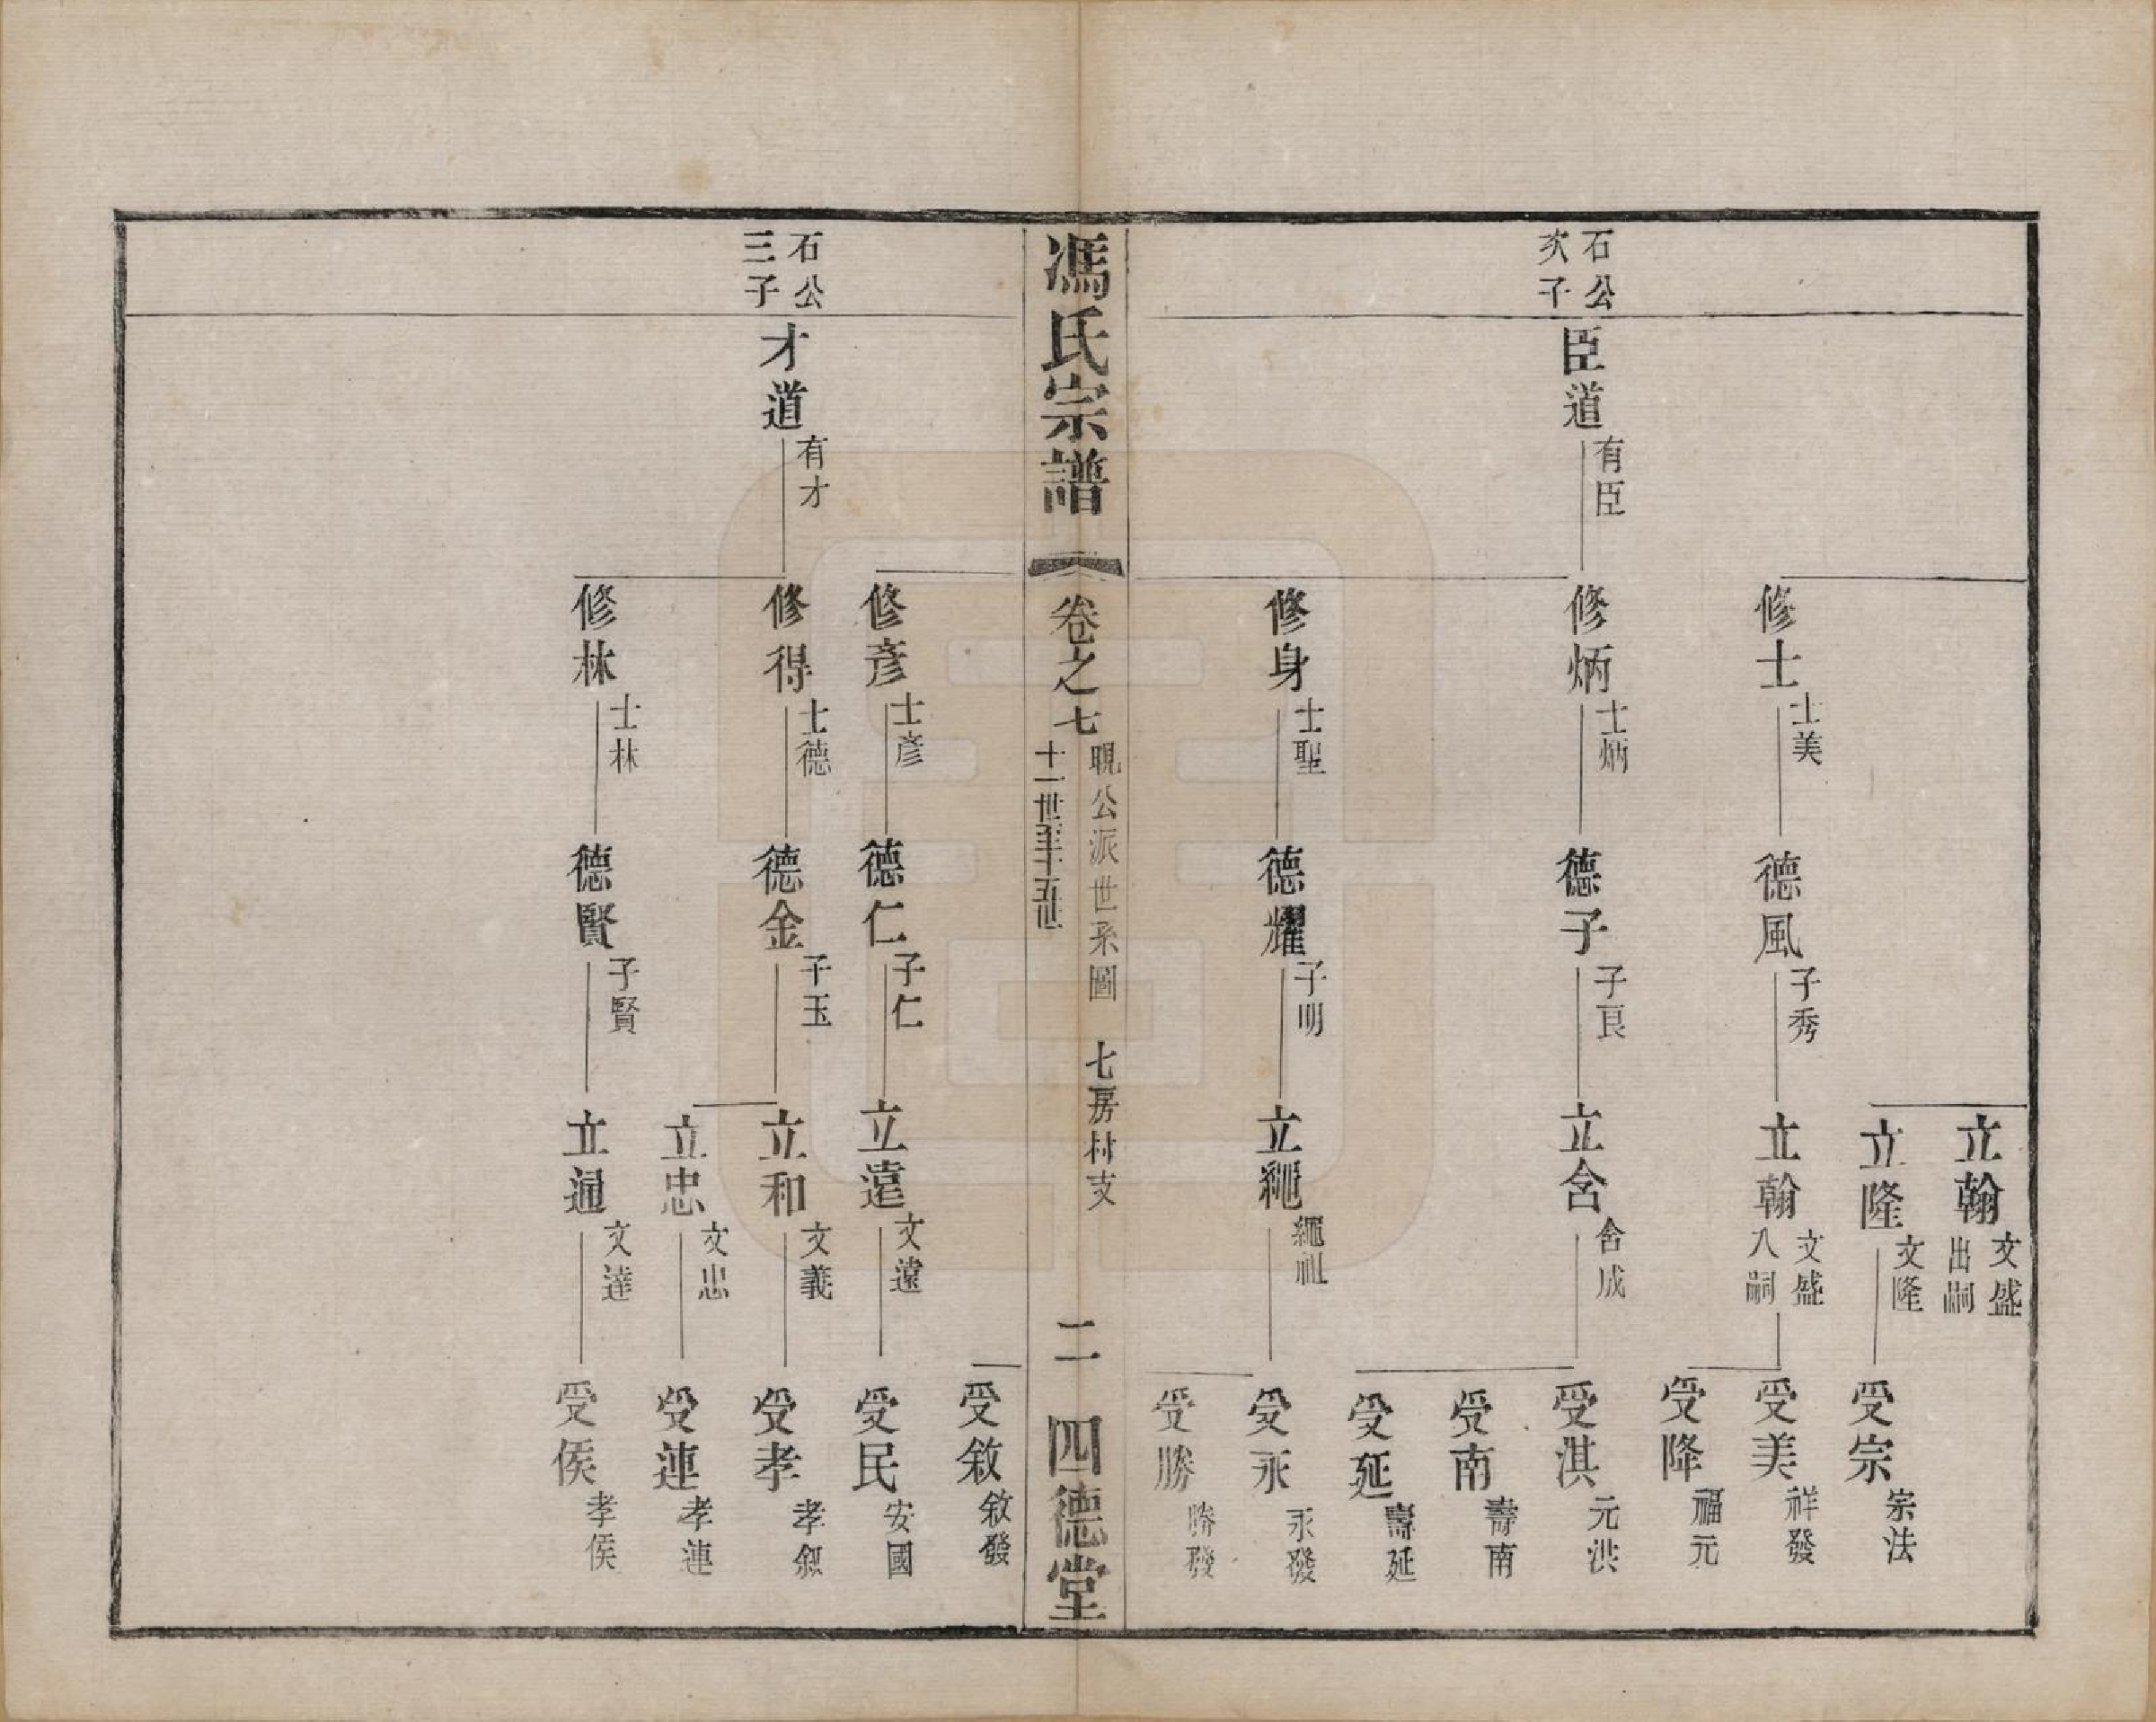 石公
次子
臣道
有臣
修士
士美
修炳
士炳
修身
士聖
德風
子秀
德子
子良
德耀
子明
立翰
文盛
出嗣
立隆
文隆
立翰
文盛
入嗣
立含
含成
立繩
繩祖
受宗
宗法
受美
祥發
受降
福元
受淇
元洪
受南
壽南
受延
壽延
受永
永發
受勝
勝發
馮氏宗譜
卷之七
晛公派世系圖 七房村支
十一世至十五世
二
四德堂
石公
三子
才道
有才
修彥
士彥
修得
士德
修林
士林
德仁
子仁
德金
子玉
德賢
子賢
立遠
文遠
立和
文義
立忠
文忠
立通
文達
受敘
敘發
受民
安國
受孝
孝叙
受連
孝連
受侯
孝侯